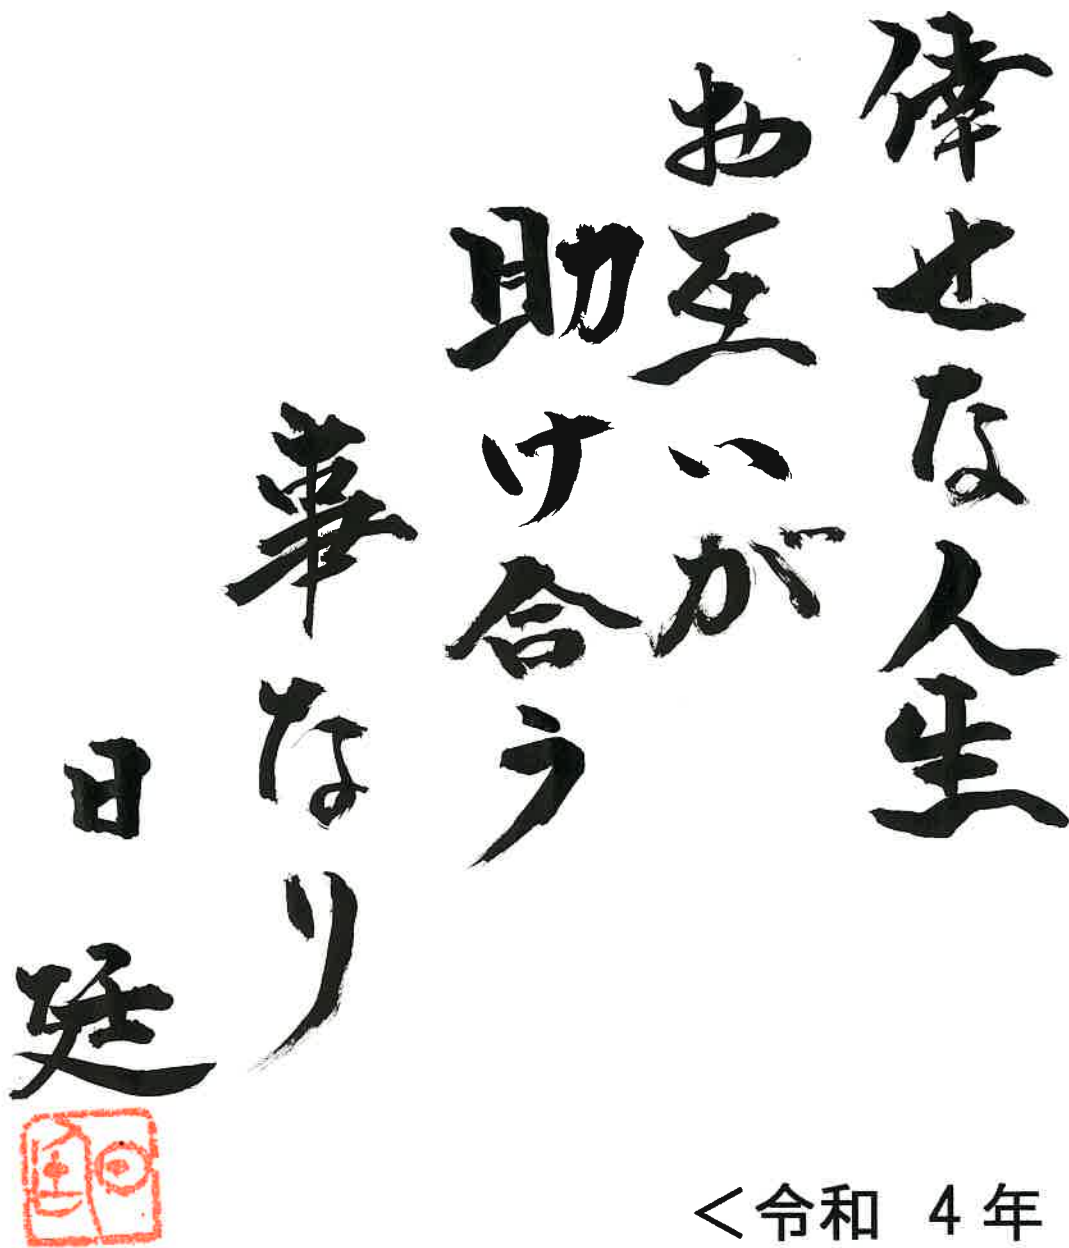 倖せな人生
お互いが
助け合う
華なり
日廷
＜令和 4年